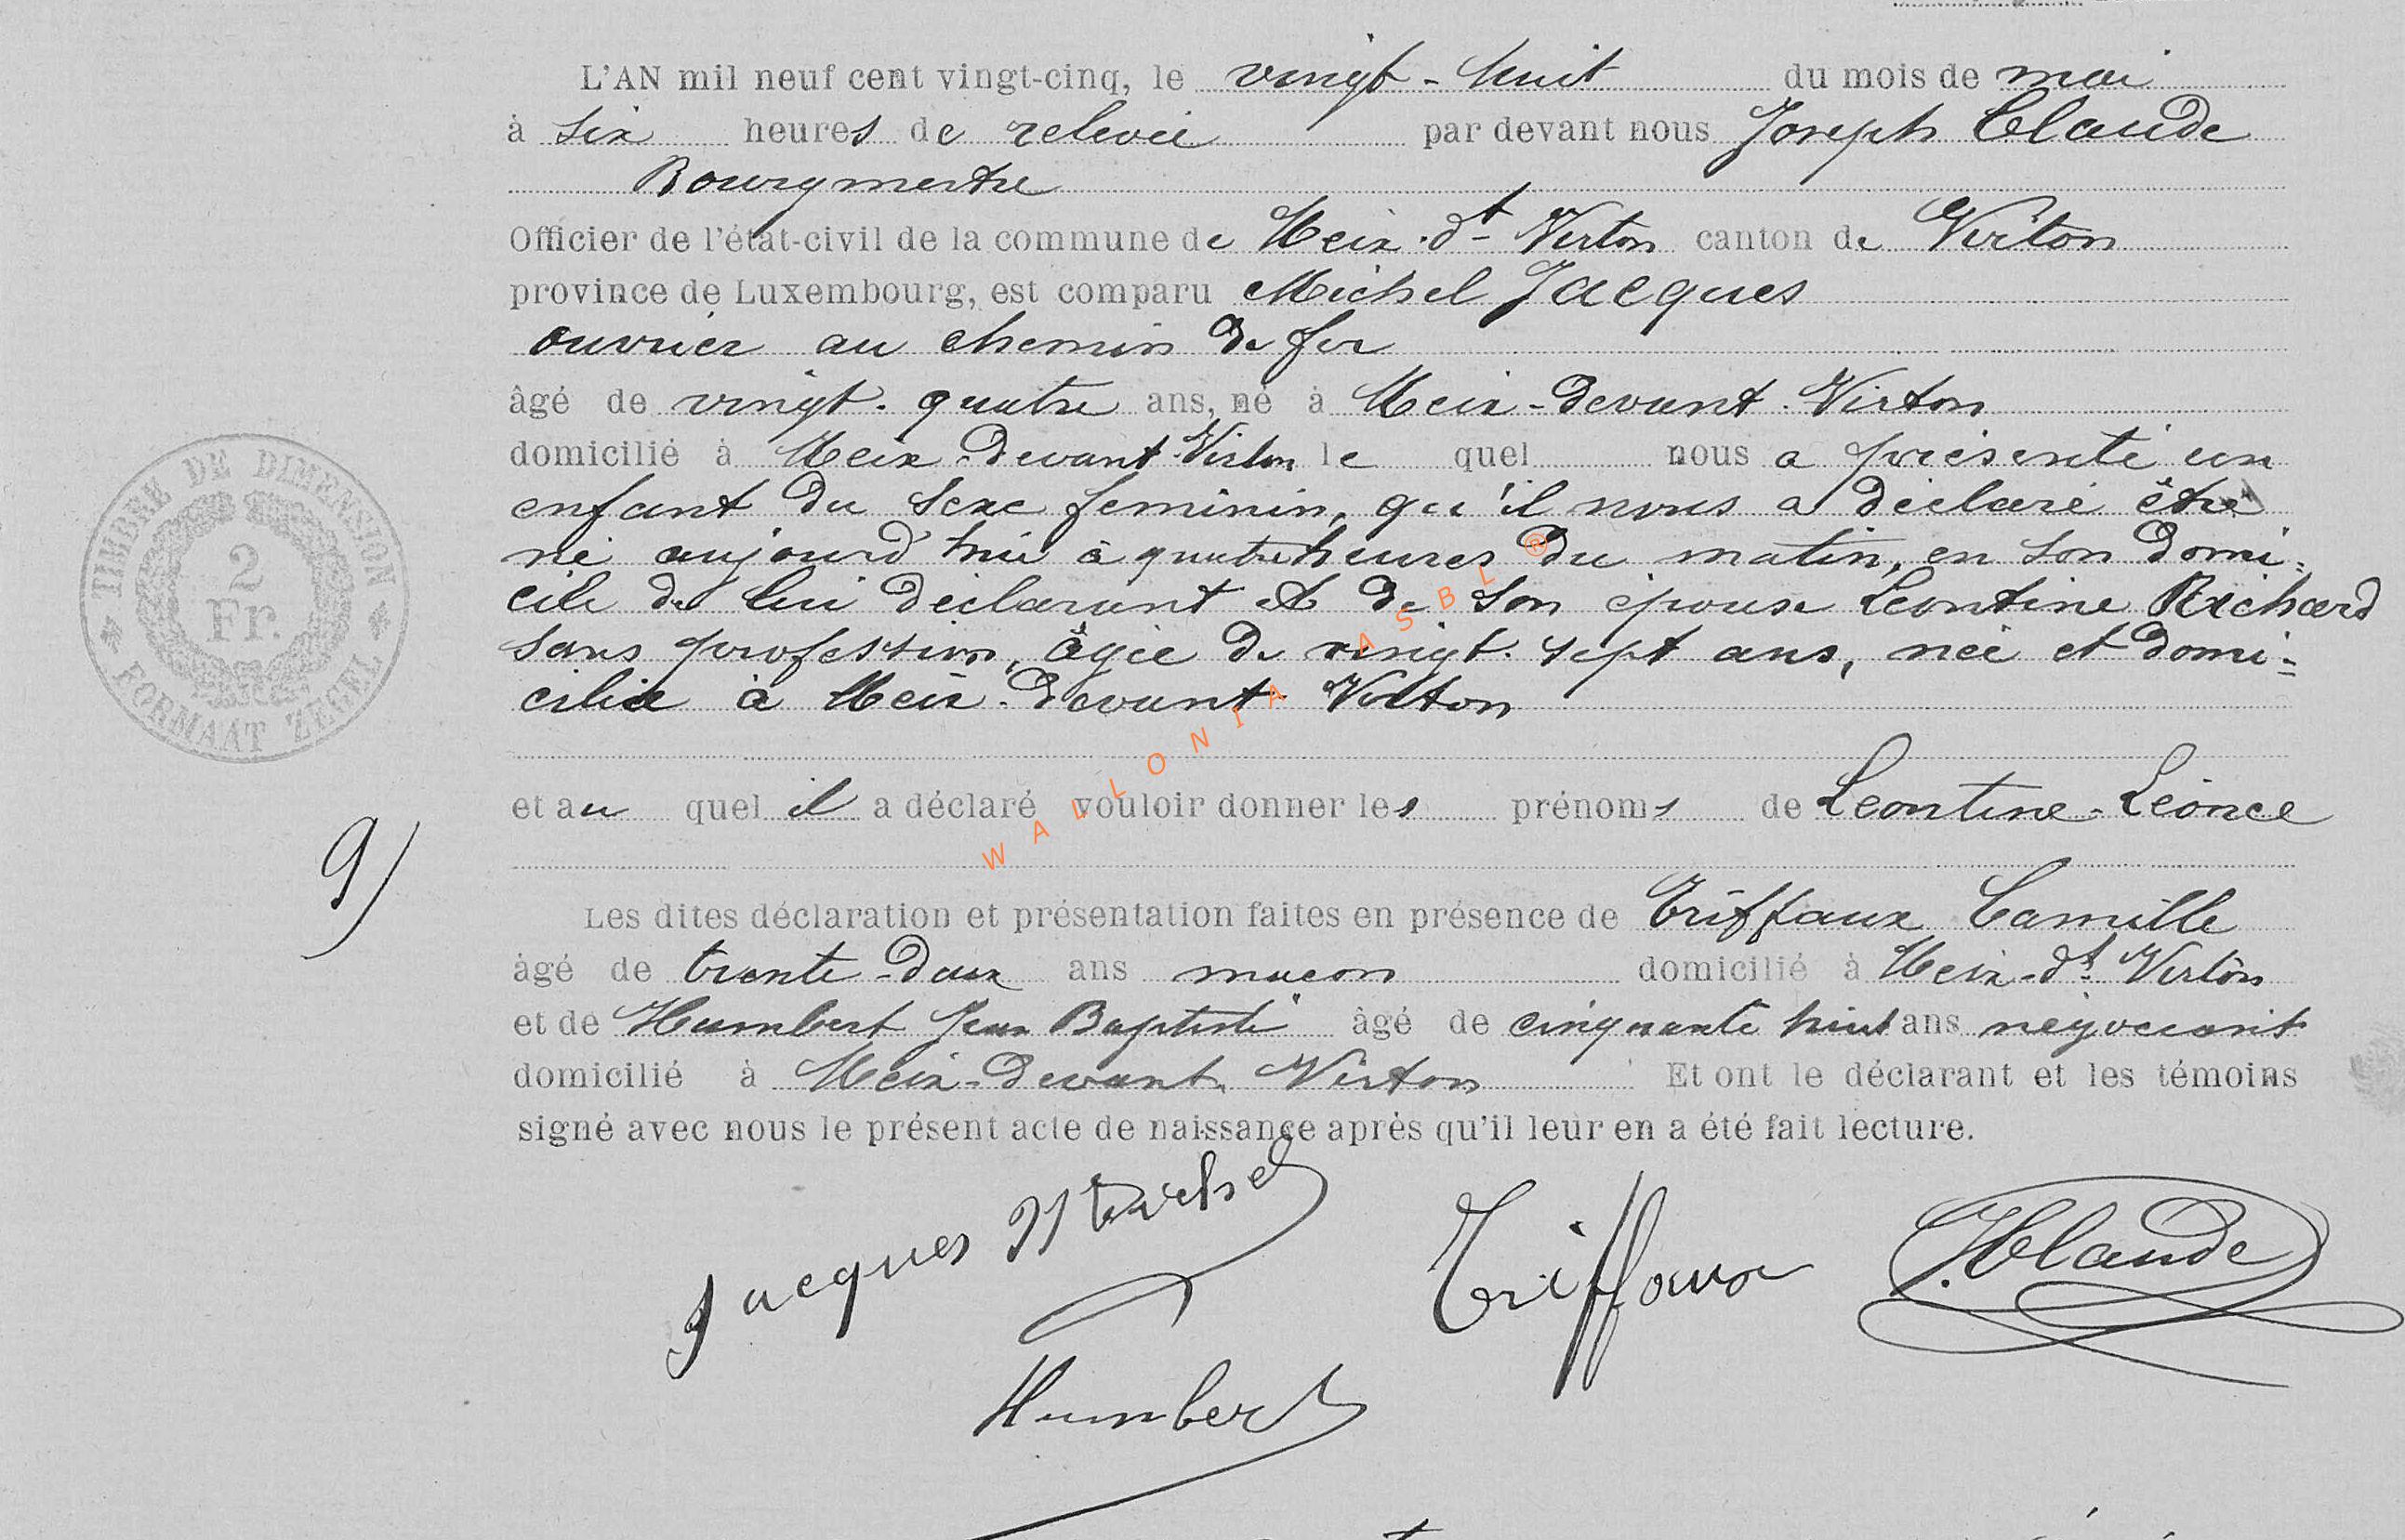 L'AN mil neuf cent vingt-cinq, le vingt-huit du mois de mai
à six heures de relevée par devant nous Joseph Claude
Bourgmestre
Officier de l'état-civil de la commune de Meix-dt-Virton canton de Virton
province de Luxembourg, est comparu Michel Jacques
ouvrier au chemin de fer
âgé de vingt-quatre ans, né à Meix-devant-Virton
domicilié à Meix-Devant-Virton le quel nous a présenté un
enfant du sexe féminin, qu'il nous a déclaré être
né aujourd'hui à quatre heures du matin, en son domi-
cile de lui déclarant et de son épouse Léontine Richard
sans profession, âgée de vingt-sept ans, née et domi-
ciliée à Meix-devant-Virton
et au quel il a déclaré vouloir donner les prénoms de Léontine-Léonce
9)
Les dites déclaration et présentation faites en présence de Triffaux Camille
âgé de trente-deux ans maçon domicilié à Meix-dt-Virton
et de Humbert Jean Baptiste âgé de cinquante huit ans négociant
domicilié à Meix-devant-Virton Et ont le déclarant et les témoins
signé avec nous le présent acte de naissance après qu'il leur en a été fait lecture.
Jacques Michel
Triffaux
J. Claude
Humbert
TIMBRE DE DIMENSION
2
Fr.
FORMAAT ZEGEL
WALLONIA ASBL ®